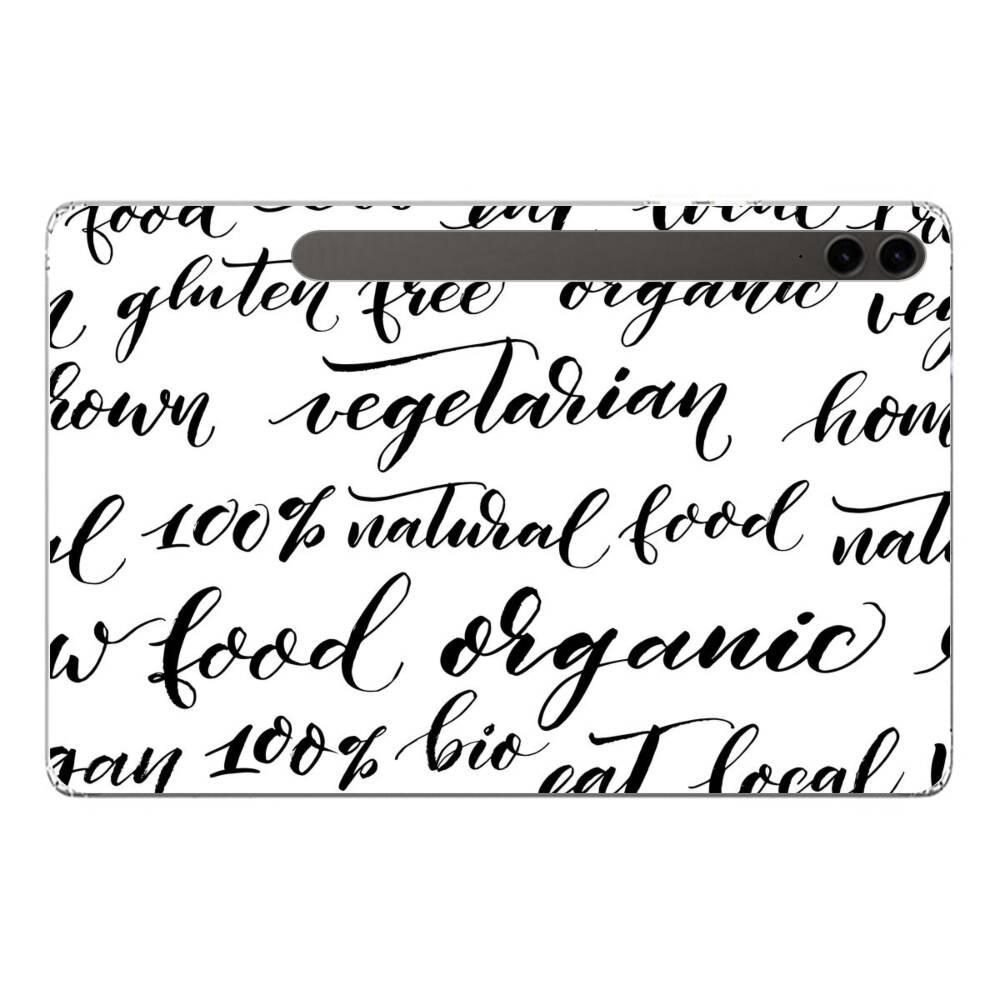 food eat local
gluten free organic veg
rown vegetarian hom
100% natural food natu
w food organic
gan 100% bio eat local